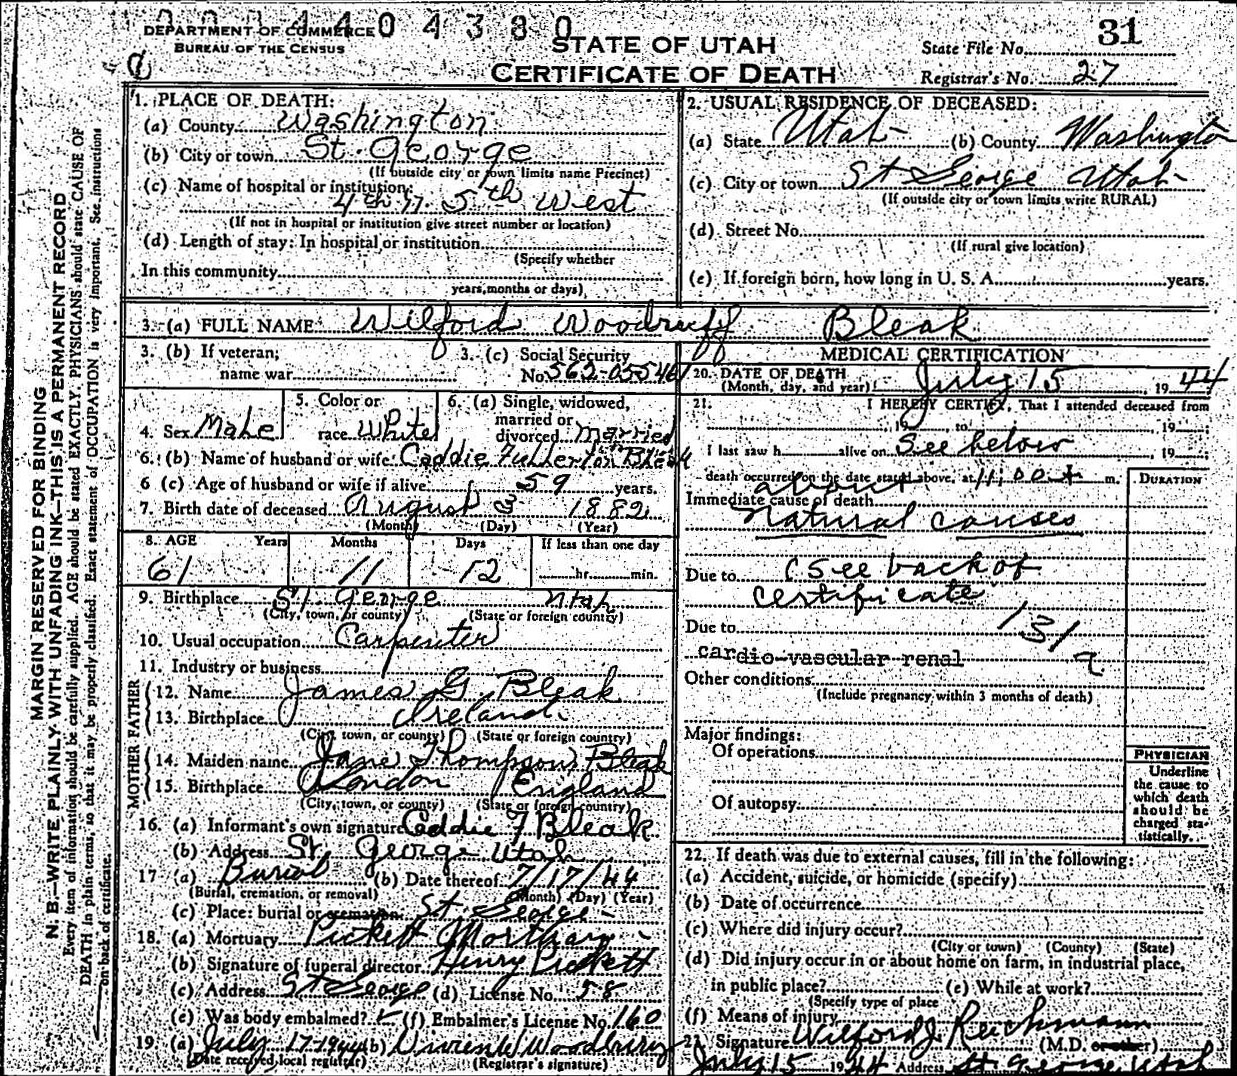 0 0 3 4 4 0 4 3 8 0
DEPARTMENT OF COMMERCE
BUREAU OF THE CENSUS
STATE OF UTAH
CERTIFICATE OF DEATH
31
State File No.
Registrar's No. 27
MARGIN RESERVED FOR BINDING
N. B.—WRITE PLAINLY WITH UNFADING INK—THIS IS A PERMANENT RECORD
Every item of information should be carefully supplied. AGE should be stated EXACTLY. PHYSICIANS should state CAUSE OF
DEATH in plain terms, so that it may be properly classified. Exact statement of OCCUPATION is very important. See instructions
on back of certificate.
1. PLACE OF DEATH:
(a) County Washington
(b) City or town St. George
(If outside city or town limits name Precinct)
(c) Name of hospital or institution:
4th N. 5th West
(If not in hospital or institution give street number or location)
(d) Length of stay: In hospital or institution
(Specify whether
In this community
years, months or days)
2. USUAL RESIDENCE OF DECEASED:
(a) State Utah (b) County Washington
(c) City or town St George Utah
(If outside city or town limits write RURAL)
(d) Street No.
(If rural give location)
(e) If foreign born, how long in U. S. A. years.
3. (a) FULL NAME Wilford Woodruff Bleak
3. (b) If veteran, name war
3. (c) Social Security
No. 562-05-5461
4. Sex Male
5. Color or race White
6. (a) Single, widowed, married or divorced Married
6. (b) Name of husband or wife Caddie Fullerton Bleak
6 (c) Age of husband or wife if alive 59 years.
7. Birth date of deceased August 3 1882
(Month) (Day) (Year)
8. AGE Years Months Days If less than one day
61 11 12 hr. min.
9. Birthplace St George Utah
(City, town, or county) (State or foreign country)
10. Usual occupation Carpenter
11. Industry or business
FATHER
12. Name James G. Bleak
13. Birthplace Ireland
(City, town, or county) (State or foreign country)
MOTHER
14. Maiden name Jane Thompson Bleak
15. Birthplace London England
(City, town, or county) (State or foreign country)
16. (a) Informant's own signature Caddie F Bleak
(b) Address St George Utah
17 (a) Burial (b) Date thereof 7/17/44
(Burial, cremation, or removal) (Month) (Day) (Year)
(c) Place: burial or cremation St. George
18. (a) Mortuary Pickett Mortuary
(b) Signature of funeral director Henry Pickett
(c) Address St George (d) License No. 58
(e) Was body embalmed? ✓ (f) Embalmer's License No. 160
19. (a) July 17-1944 (b) Woodbury
(Date received local registrar) (Registrar's signature)
MEDICAL CERTIFICATION
20. DATE OF DEATH
(Month, day, and year) July 15, 1944
21. I HEREBY CERTIFY, That I attended deceased from
, 19 , to , 19 ;
I last saw h alive on See below , 19 ;
death occurred on the date stated above, at about 11:00 m.
DURATION
Immediate cause of death
natural causes
Due to (See back of
certificate
Due to 131 a
cardio-vascular renal
Other conditions
(Include pregnancy within 3 months of death)
Major findings:
Of operations
Of autopsy
PHYSICIAN
Underline
the cause to
which death
should be
charged sta-
tistically.
22. If death was due to external causes, fill in the following:
(a) Accident, suicide, or homicide (specify)
(b) Date of occurrence
(c) Where did injury occur?
(City or town) (County) (State)
(d) Did injury occur in or about home on farm, in industrial place,
in public place? (e) While at work?
(Specify type of place
(f) Means of injury
23. Signature Wilford J. Reichmann (M.D. or other)
July 15 1944 Address St George Utah